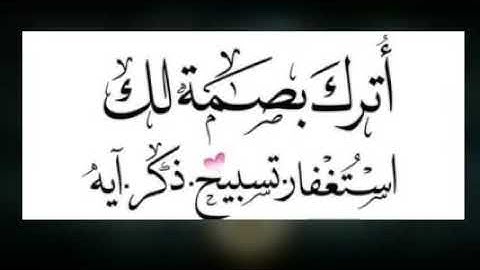 أُترك بصمة لك
استغفار.تسبيح.ذكر.آيه